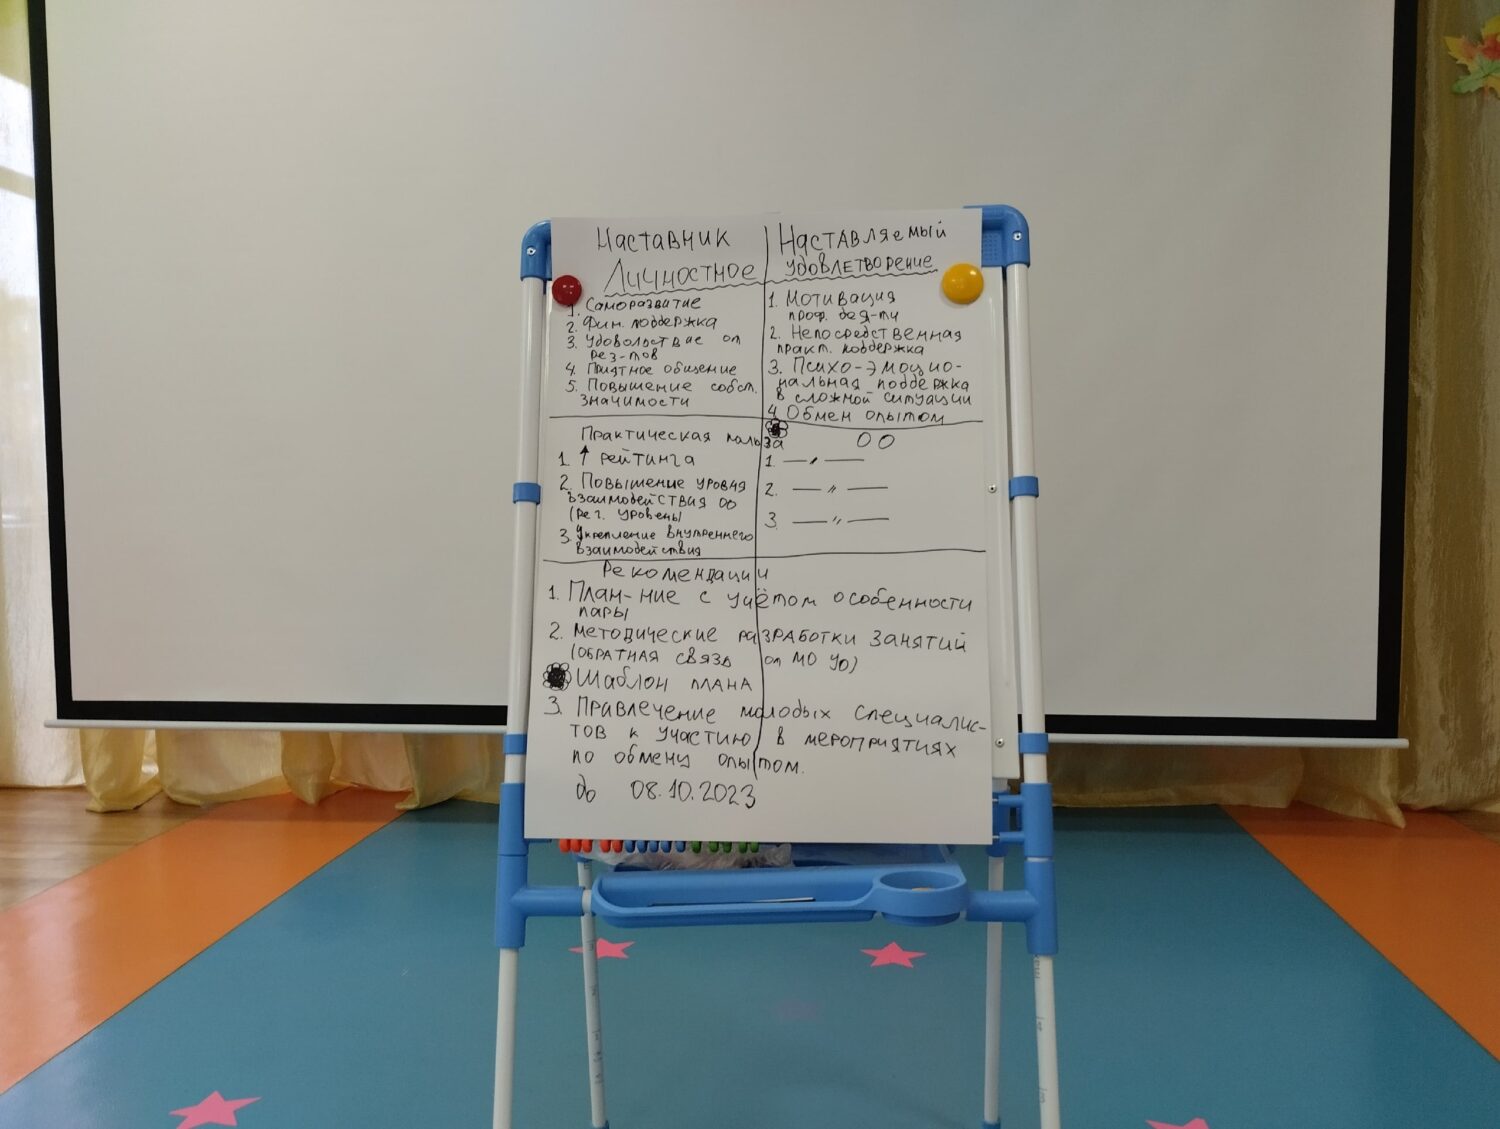 Наставник
Наставляемый
Личностное удовлетворение
1. Саморазвитие
2. Фин. поддержка
3. Удовольствие от
рез-тов
4. Приятное общение
5. Повышение собст.
значимости
1. Мотивация
проф. дея-ти
2. Непосредственная
практ. поддержка
3. Психо-эмоцио-
нальная поддержка
в сложной ситуации
4. Обмен опытом
Практическая польза
ОО
1. ↑ рейтинга
2. Повышение уровня
взаимодействия ОО
(рег. уровень)
3. Укрепление внутреннего
взаимодействия
1. — " —
2. — " —
3. — " —
Рекомендации
1. План-ние с учётом особенности
пары
2. Методические разработки занятий
(обратная связь от МО УО)
Шаблон плана
3. Правлечение молодых специалис-
тов к участию в мероприятиях
по обмену опытом.
до 08.10.2023